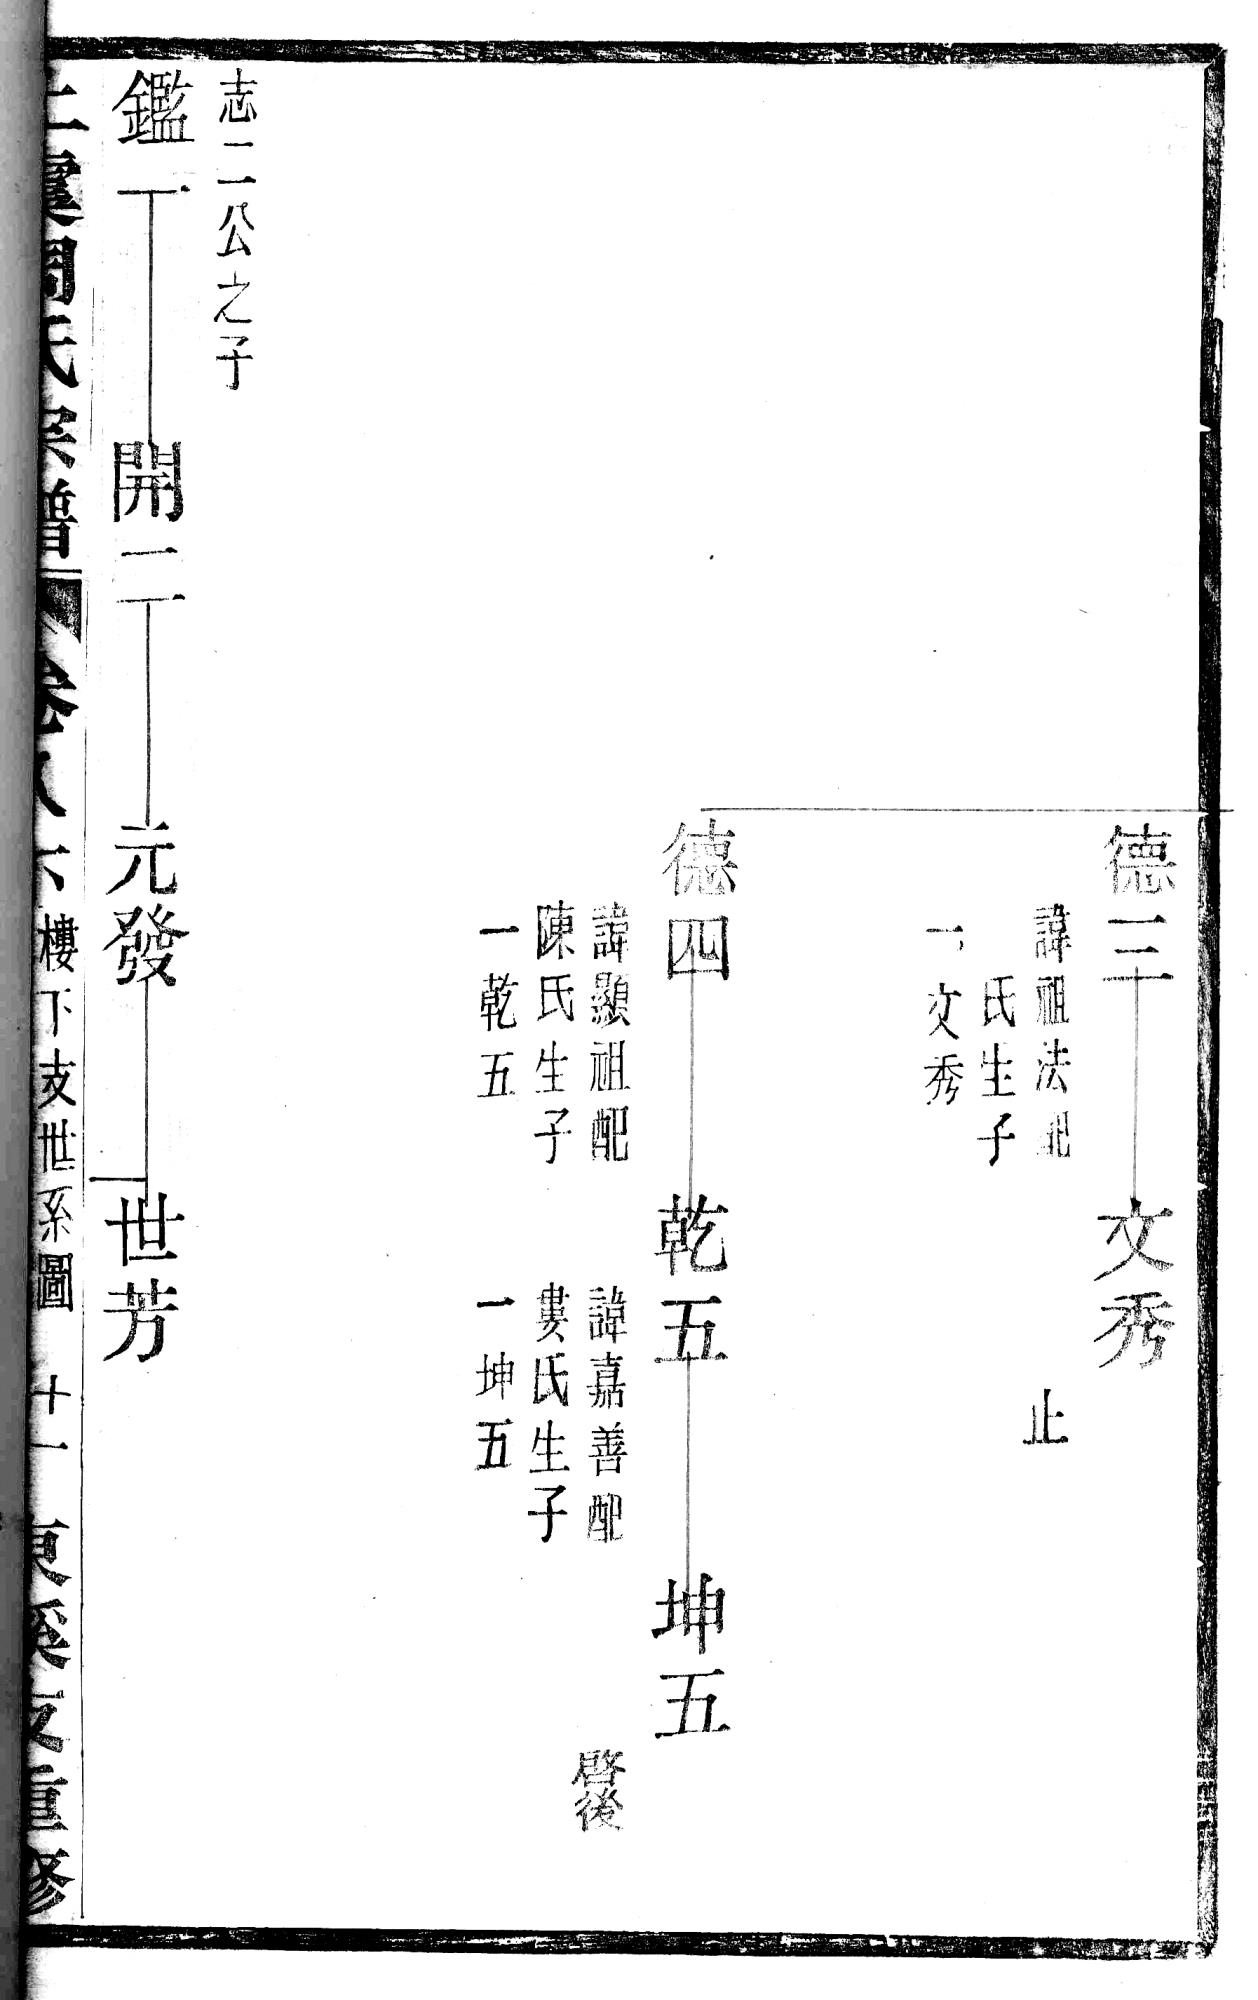 德三
諱祖法配
氏生子
一文秀
文秀
止
德四
諱顯祖配
陳氏生子
一乾五
乾五
諱嘉善配
婁氏生子
一坤五
坤五
啓後
志二公之子
鑑一
開二
元發
世芳
上虞周氏宗譜
卷八六 樓下支世系圖 十一
東溪支重修